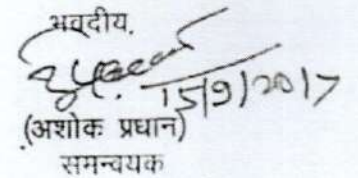 भवदीय,
15/9/2017
(अशोक प्रधान)
समन्वयक